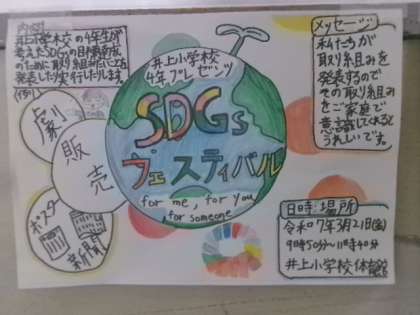 内容
井上小学校の4年生が
考えたSDGsの目標達成
のために取り組みたいことを
発表したり実行したりします。
(例)
劇
販売
ポスター
新聞
井上小学校
4年プレゼンツ
SDGs
フェスティバル
for me, for you,
for someone
メッセージ
私たちが
取り組みを
発表するので
その取り組み
をご家庭で
意識してくれると
うれしいです。
日時・場所
令和7年3月21日(金)
9時50分~11時40分
井上小学校体育館